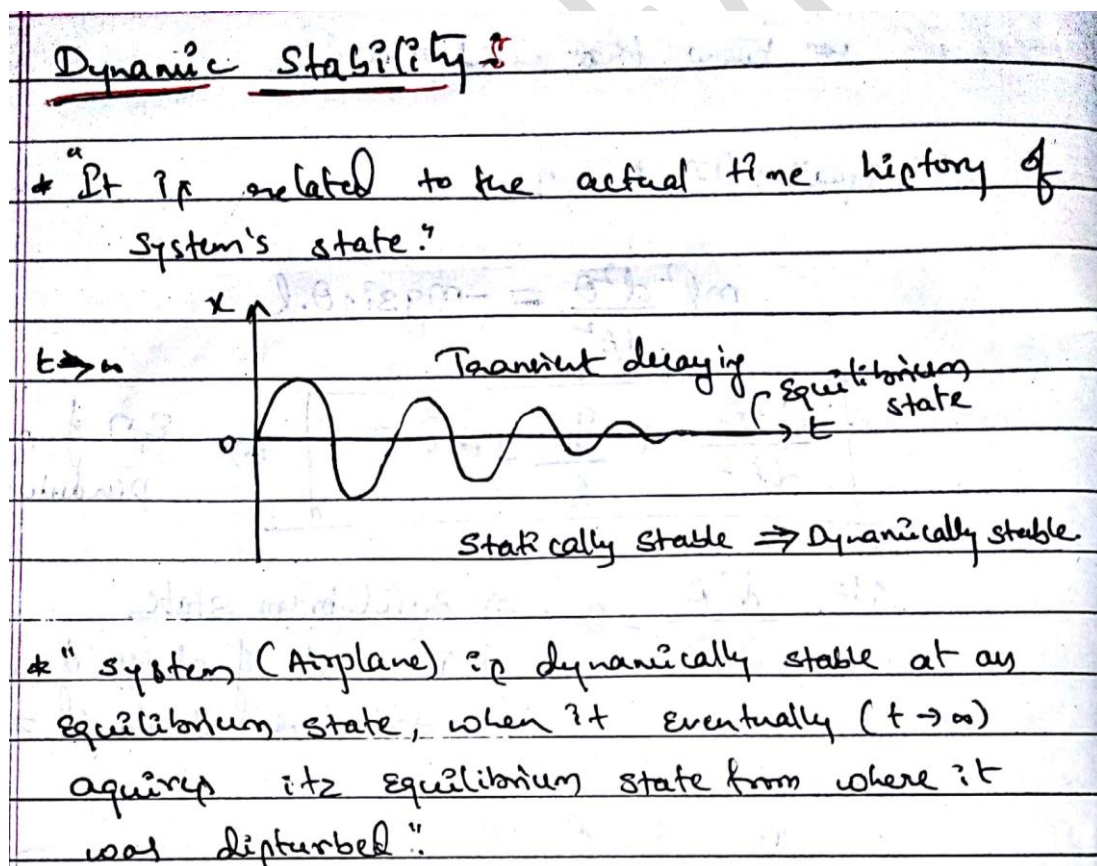 Dynamic Stability :
* "It is related to the actual time history of
system's state."
x
t → ∞
Transient decaying
Equilibrium
state
0
t
Statically stable ⇒ Dynamically stable
* " system (Airplane) is dynamically stable at an
equilibrium state, when it eventually (t → ∞)
aquires itz equilibrium state from where it
was disturbed".